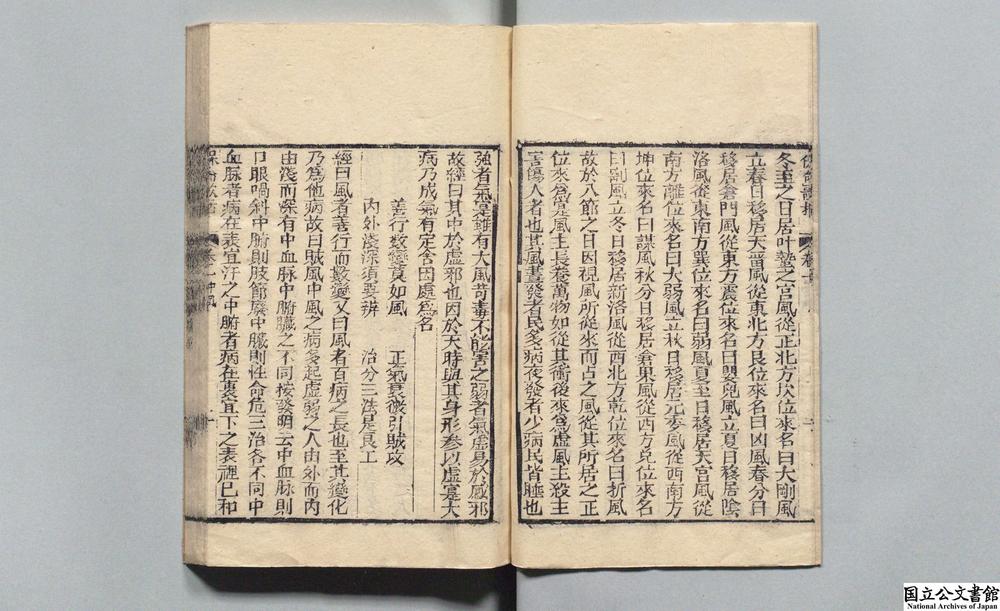 冬至之日居叶蟄之宫風從正北方坎位來名曰大剛風
立春日移居天畱風從東北方艮位來名曰凶風春分日
移居倉門風從東方震位來名曰嬰兒風立夏日移居陰
洛風從東南方巽位來名曰弱風夏至日移居天宫風從
南方離位來名曰大弱風立秋日移居元委風從西南方
坤位來名曰謀風秋分日移居倉果風從西方兌位來名
曰剛風立冬日移居新洛風從西北方乾位來名曰折風
故於八節之日因視風所從來而占之風從其所居之正
位來爲是風主長養萬物如從其衝後來爲虛風主殺主
害傷人者也其風晝發者民多病夜發者少病民皆睡也
強者氣寔雖有大風苛毒不能害之弱者氣虛易於感邪
故經曰其中於虛邪也因於天時與其身形参以虛寔大
病乃成氣有定舍因處爲名
善行数變莫如風 正氣衰微引賊攻
内外淺深須要辨 治分三法是良工
經曰風者善行而數變又曰風者百病之長也至其變化
乃爲他病故曰賊風中風之病多起虛弱之人由外而内
由淺而深有中血脉中腑臟之不同按發明云中血脉則
口眼喎斜中腑則肢節廢中臟則性命危三治各不同中
血脉者病在表宜汗之中腑者病在裏宜下之表裡已和
国立公文書館
National Archives of Japan